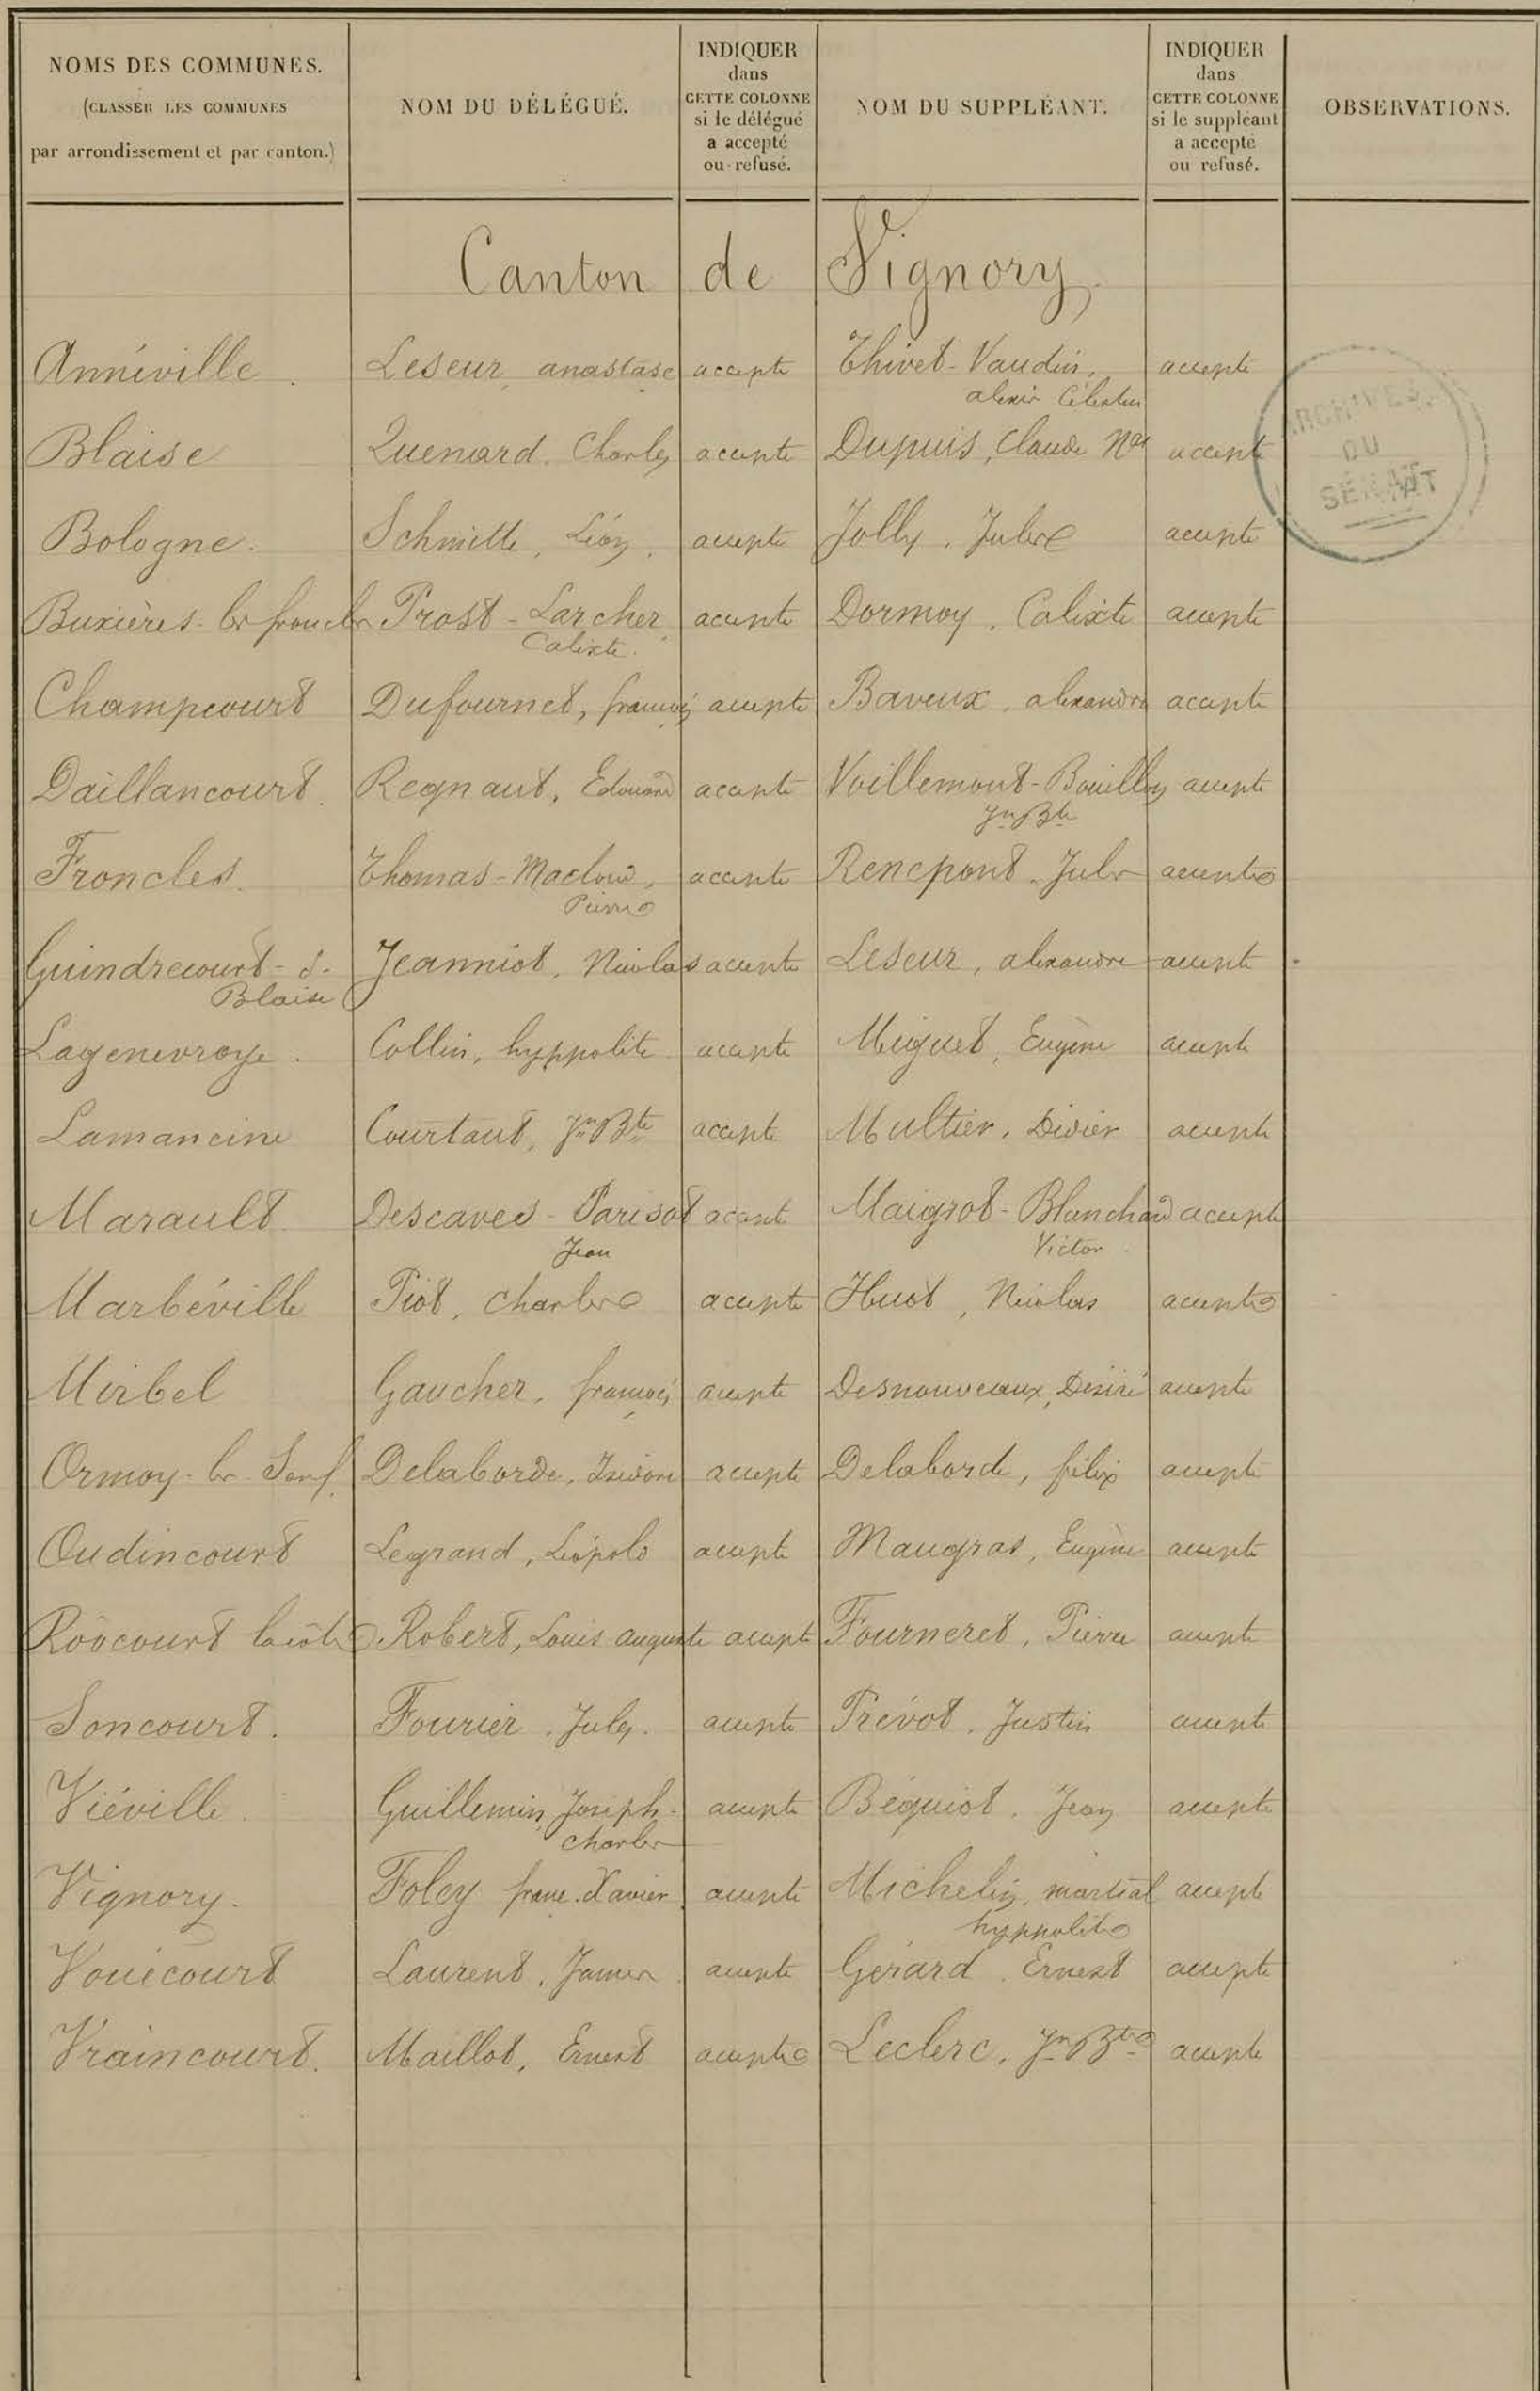 NOMS DES COMMUNES.
(CLASSER LES COMMUNES
par arrondissement et par canton.)
NOM DU DÉLÉGUÉ.
INDIQUER
dans
CETTE COLONNE
si le délégué
a accepté
ou refusé.
NOM DU SUPPLÉANT.
INDIQUER
dans
CETTE COLONNE
si le suppléant
a accepté
ou refusé.
OBSERVATIONS.
Canton de Vignory.
Annéville. Leseur, anastase accepte Thivet-Vaudin, accepte
alexis Célestin
Blaise Quenard. Charles accepte Dupuis, Claude Nas accepte
Bologne. Schmitte, Léon. accepte Jolly. Jules accepte
Buxières-les froncles Prost-Larcher accepte Dormoy. Calixte accepte
Calixte.
Champcourt Dufournet, françois accepte Baveux, alexandre accepte
Daillancourt. Regnaut, Edouard accepte Voillemont-Bouillon accepte
Jn Bte
Froncles. Thomas-Macloud, accepte Rencpont. Jules accepte
Pierre
Guindrecourt-s- Jeanniot, Nicolas accepte Leseur, alexandre accepte
Blaise
Lagenevroye. Collin, hyppolite accepte Miguet, Eugène accepte
Lamancine Courtaut, Jn Bte accepte Multier, Didier accepte
Marault Descaves-Parisot accepte Maigrot-Blanchard accepte
Jean Victor
Marbéville Piot, Charles accepte Huot, Nicolas accepte
Mirbel Gaucher, françois accepte Desnouveaux, Désiré accepte
Ormoy-les-Sexf. Delaborde, Isidore accepte Delaborde, félix accepte
Oudincourt Legrand, Léopold accepte Maugras, Eugène accepte
Rôôcourt la côte Robert, Louis auguste accepte Fourneret, Pierre accepte
Soncourt. Fourier. Jules. accepte Prévot. Justin accepte
Viéville. Guillemin, Joseph- accepte Béquiot. Jean accepte
Charles
Vignory. Foley franc. Xavier accepte Michelin, martial accepte
hyppolite
Vouécourt Laurent, James accepte Gérard. Ernest accepte
Vraincourt. Maillot, Ernest accepte Leclerc, Jn Bte accepte
ARCHIVES
DU
SÉNAT